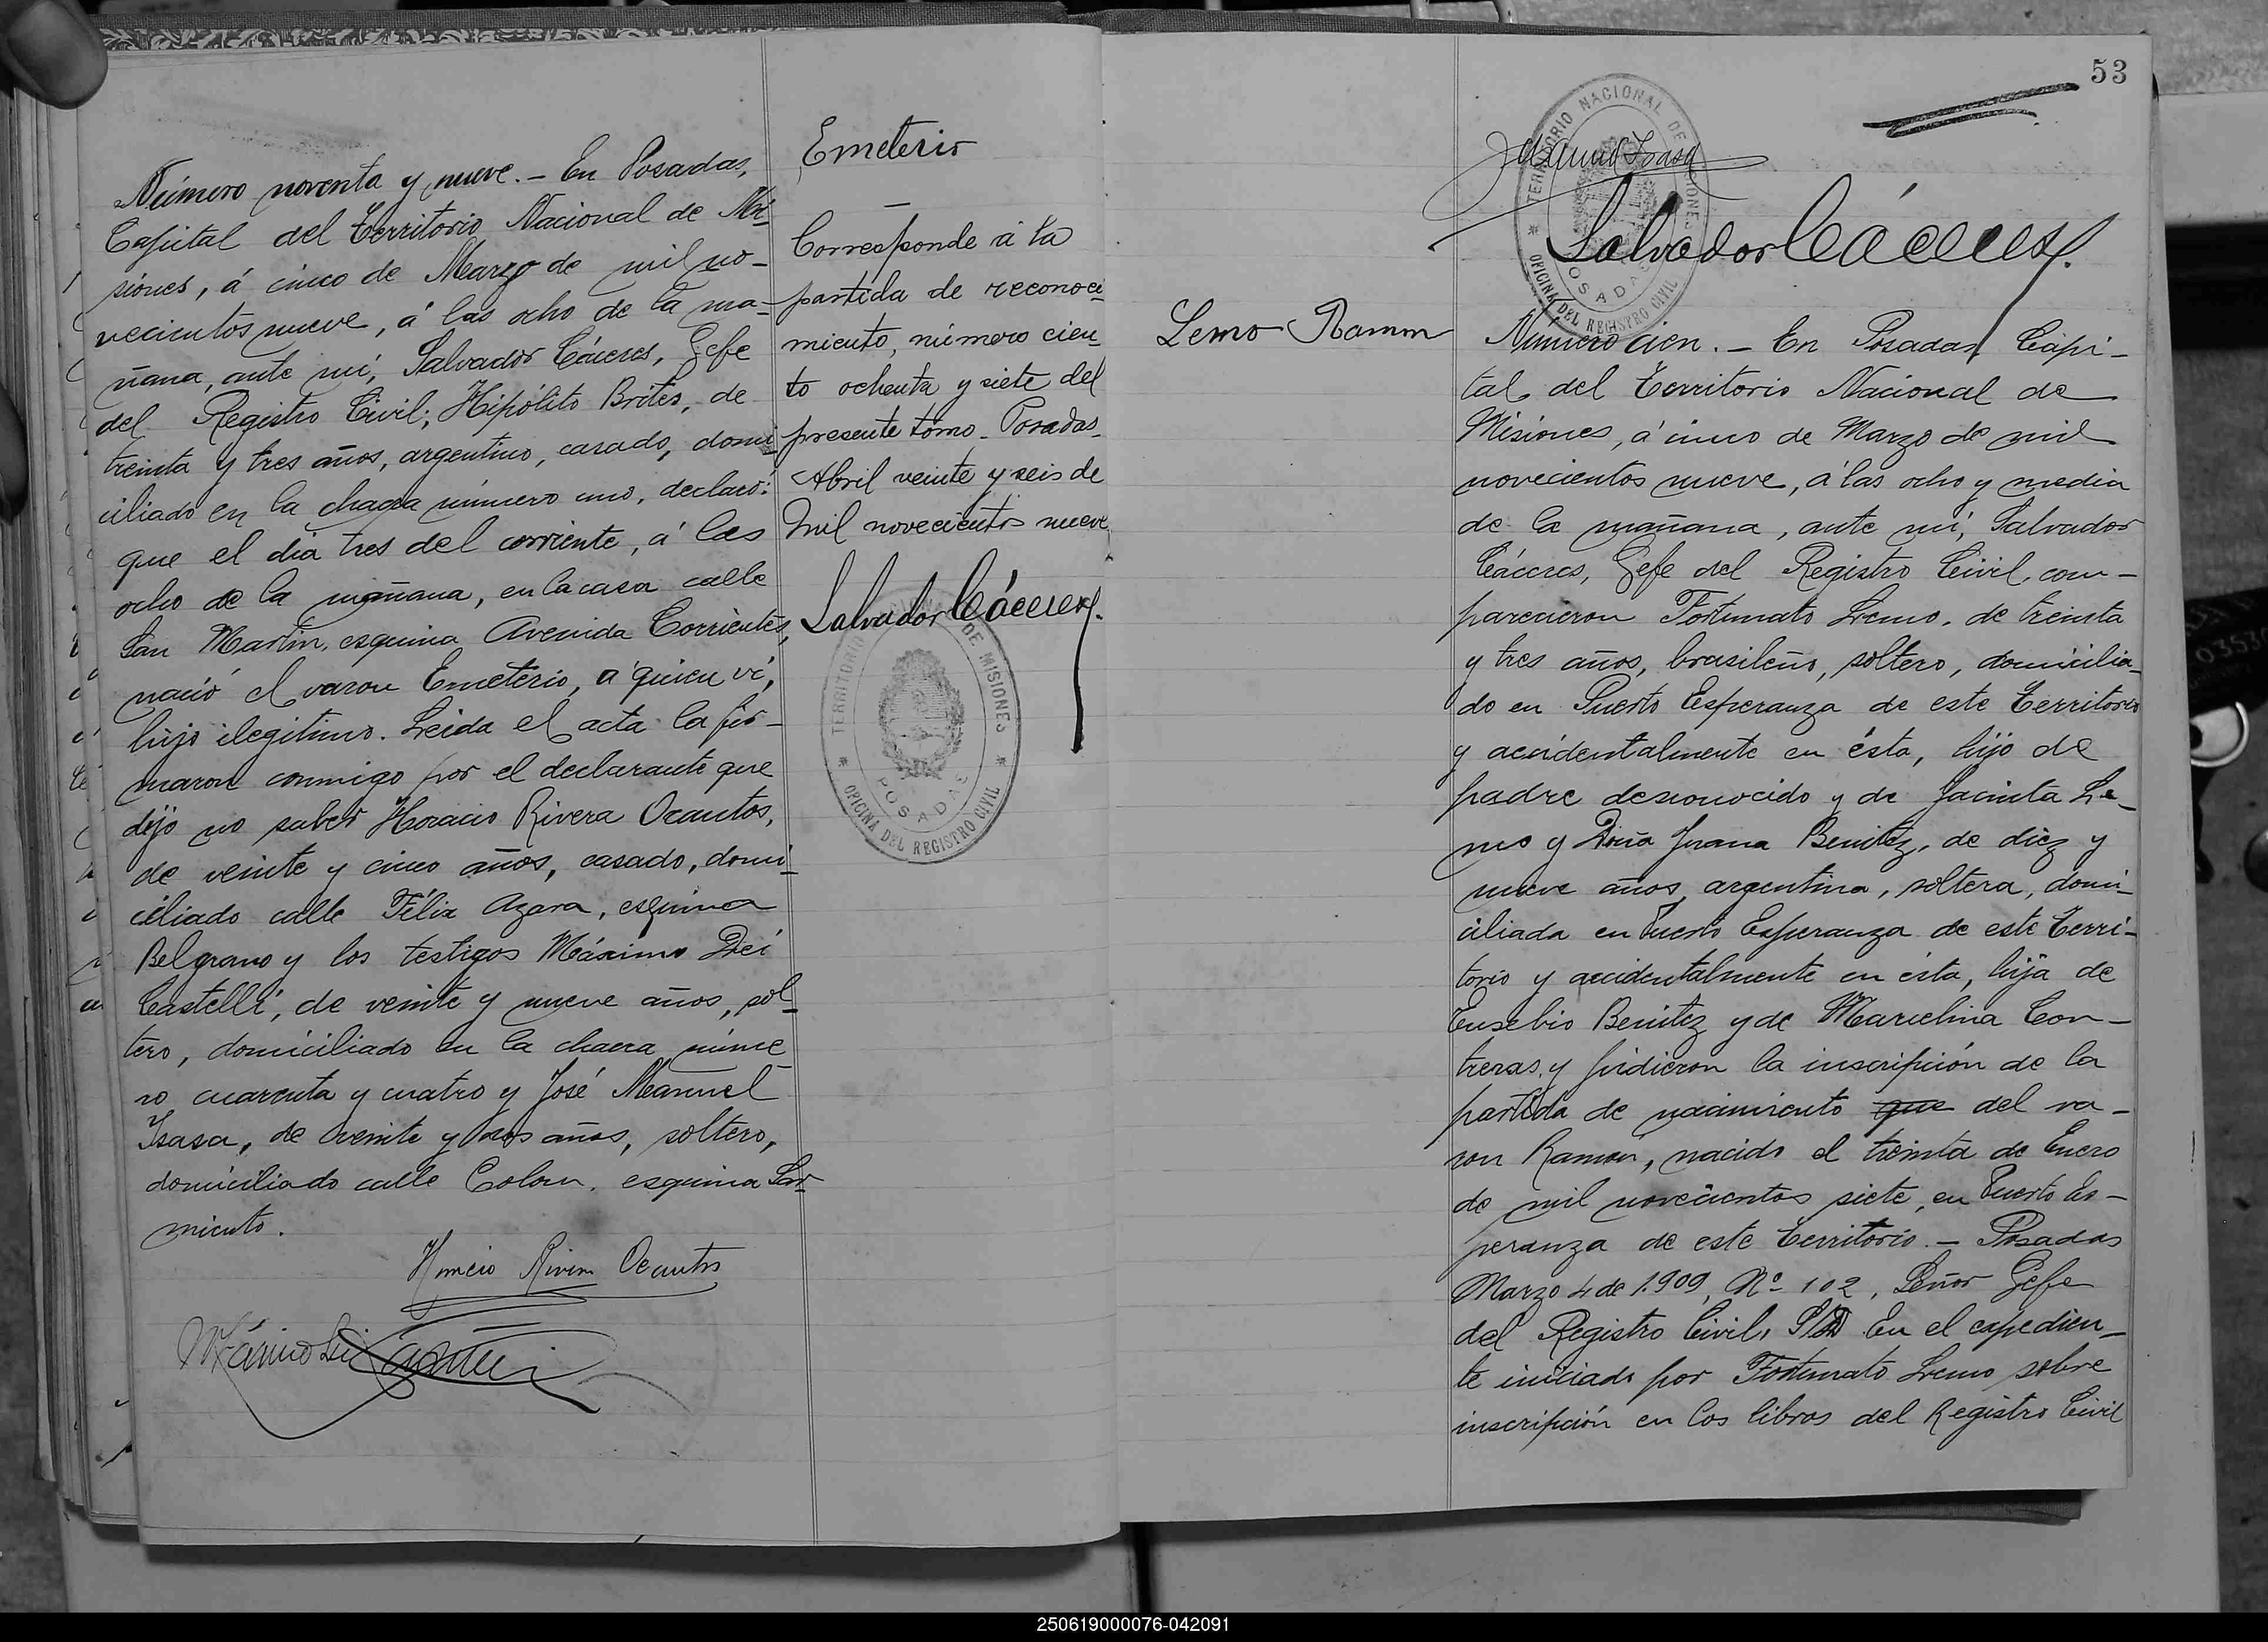 Número noventa y nueve. - En Posadas,
Capital del Territorio Nacional de Mi-
siones, á cinco de Marzo de mil no-
vecientos nueve, á las ocho de la ma-
ñana, ante mí, Salvador Cáceres, Gefe
del Registro Civil; Hipólito Brites, de
treinta y tres años, argentino, casado, domi-
ciliado en la chacra número uno, declaró:
que el dia tres del corriente, á las
ocho de la mañana, en la casa calle
San Martin, esquina Avenida Corrientes,
nació el varon Emeterio, á quien ví,
hijo ilegitimo. Leida el acta la fir-
maron conmigo por el declarante que
dijo no saber Horacio Rivera Ocantos,
de veinte y cinco años, casado, domi-
ciliado calle Félix Azara, esquina
Belgrano y los testigos Máximo Dei
Castelli, de veinte y nueve años, sol-
tero, domiciliado en la chacra núme-
ro cuarenta y cuatro y José Manuel
Isasa, de veinte y dos años, soltero,
domiciliado calle Colon, esquina Sar-
miento.
Horacio Rivera Ocantos
Máximo Dei Castelli
Emeterio
Corresponde á la
partida de reconoci-
miento, número cien-
to ochenta y siete del
presente tomo. Posadas
Abril veinte y seis de
mil novecientos nueve
Salvador Cáceres.
TERRITORIO NACIONAL DE MISIONES
POSADAS
OFICINA DEL REGISTRO CIVIL
53
TERRITORIO NACIONAL DE MISIONES
POSADAS
OFICINA DEL REGISTRO CIVIL
J Manuel Isasa
Salvador Cáceres.
Lemo Ramon
Número cien. - En Posadas, Capi-
tal del Territorio Nacional de
Misiones, á cinco de Marzo de mil
novecientos nueve, á las ocho y media
de la mañana, ante mí, Salvador
Cáceres, Gefe del Registro Civil, com-
parecieron Fortunato Lemo, de treinta
y tres años, brasileño, soltero, domicilia-
do en Puerto Esperanza de este Territorio
y accidentalmente en ésta, hijo de
padre desconocido y de Jacinta Le-
mo y Doña Juana Benitez, de diez y
nueve años, argentina, soltera, domi-
ciliada en Puerto Esperanza de este Terri-
torio y accidentalmente en ésta, hija de
Eusebio Benitez y de Marcelina Con-
treras, y pidieron la inscripción de la
partida de nacimiento que del va-
ron Ramon, nacido el treinta de Enero
de mil novecientos siete, en Puerto Es-
peranza de este Territorio. - Posadas
Marzo 4 de 1.909, Nº 102, Señor Gefe
del Registro Civil, S/D En el expedien-
te iniciado por Fortunato Lemo sobre
inscripción en los libros del Registro Civil
250619000076-042091